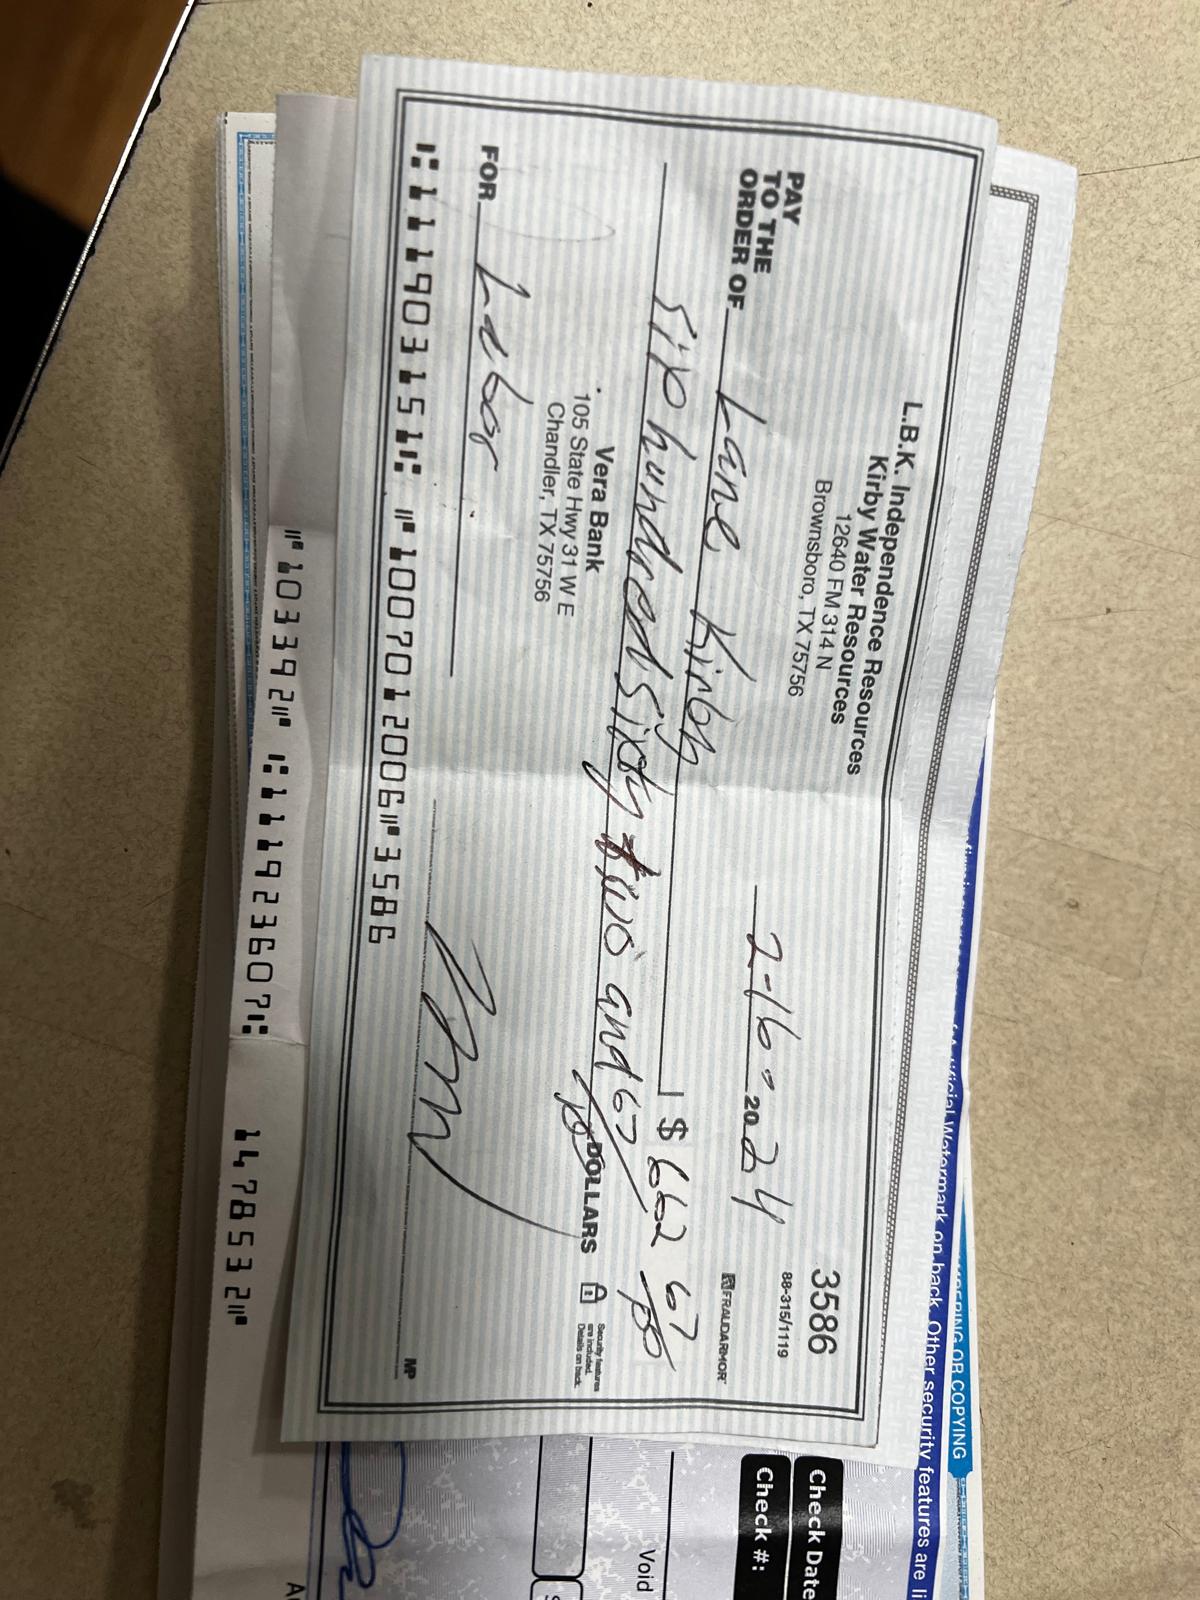 L.B.K. Independence Resources
Kirby Water Resources
12640 FM 314 N
Brownsboro, TX 75756
3586
88-315/1119
2-16- 2024
FRAUDARMOR
PAY
TO THE
ORDER OF Lane Kirby $ 662 67/100
Six hundred sixty two and 67/100 DOLLARS
Security features
are included.
Details on back.
Vera Bank
105 State Hwy 31 W E
Chandler, TX 75756
FOR Labor
MP
⑆111903151⑆ ⑈1007012006⑈3586
⑈103392⑈ ⑆111923607⑆ 1478532⑈
Watermark on back. Other security features are li
OR COPYING
Check Date
Check #:
Void